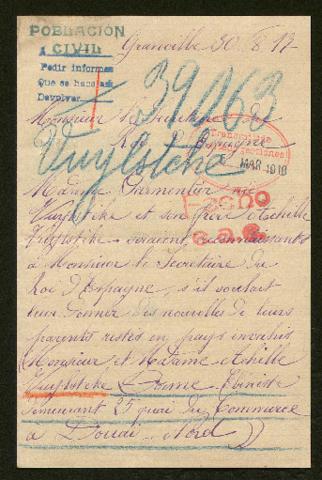 POBLACIÓN
CIVIL
Pedir informes
Que se hace
Devolver
Granville 30 8 17
39063
Monsieur le Secrétaire du
Roi d'Espagne
Transmitido
MAR 1918
Vuylstèke
Madame Parmentier née
Vuylstèke et son frère Achille
Vuylstèke seraient reconnaissants
à Monsieur le Secrétaire du
Roi d'Espagne, s'il voulait
leur donner des nouvelles de leurs
parents restés en pays envahis
Monsieur et Madame Achille
Vuylstèke
demeurant 25 quai du Commerce
à Douai Nord